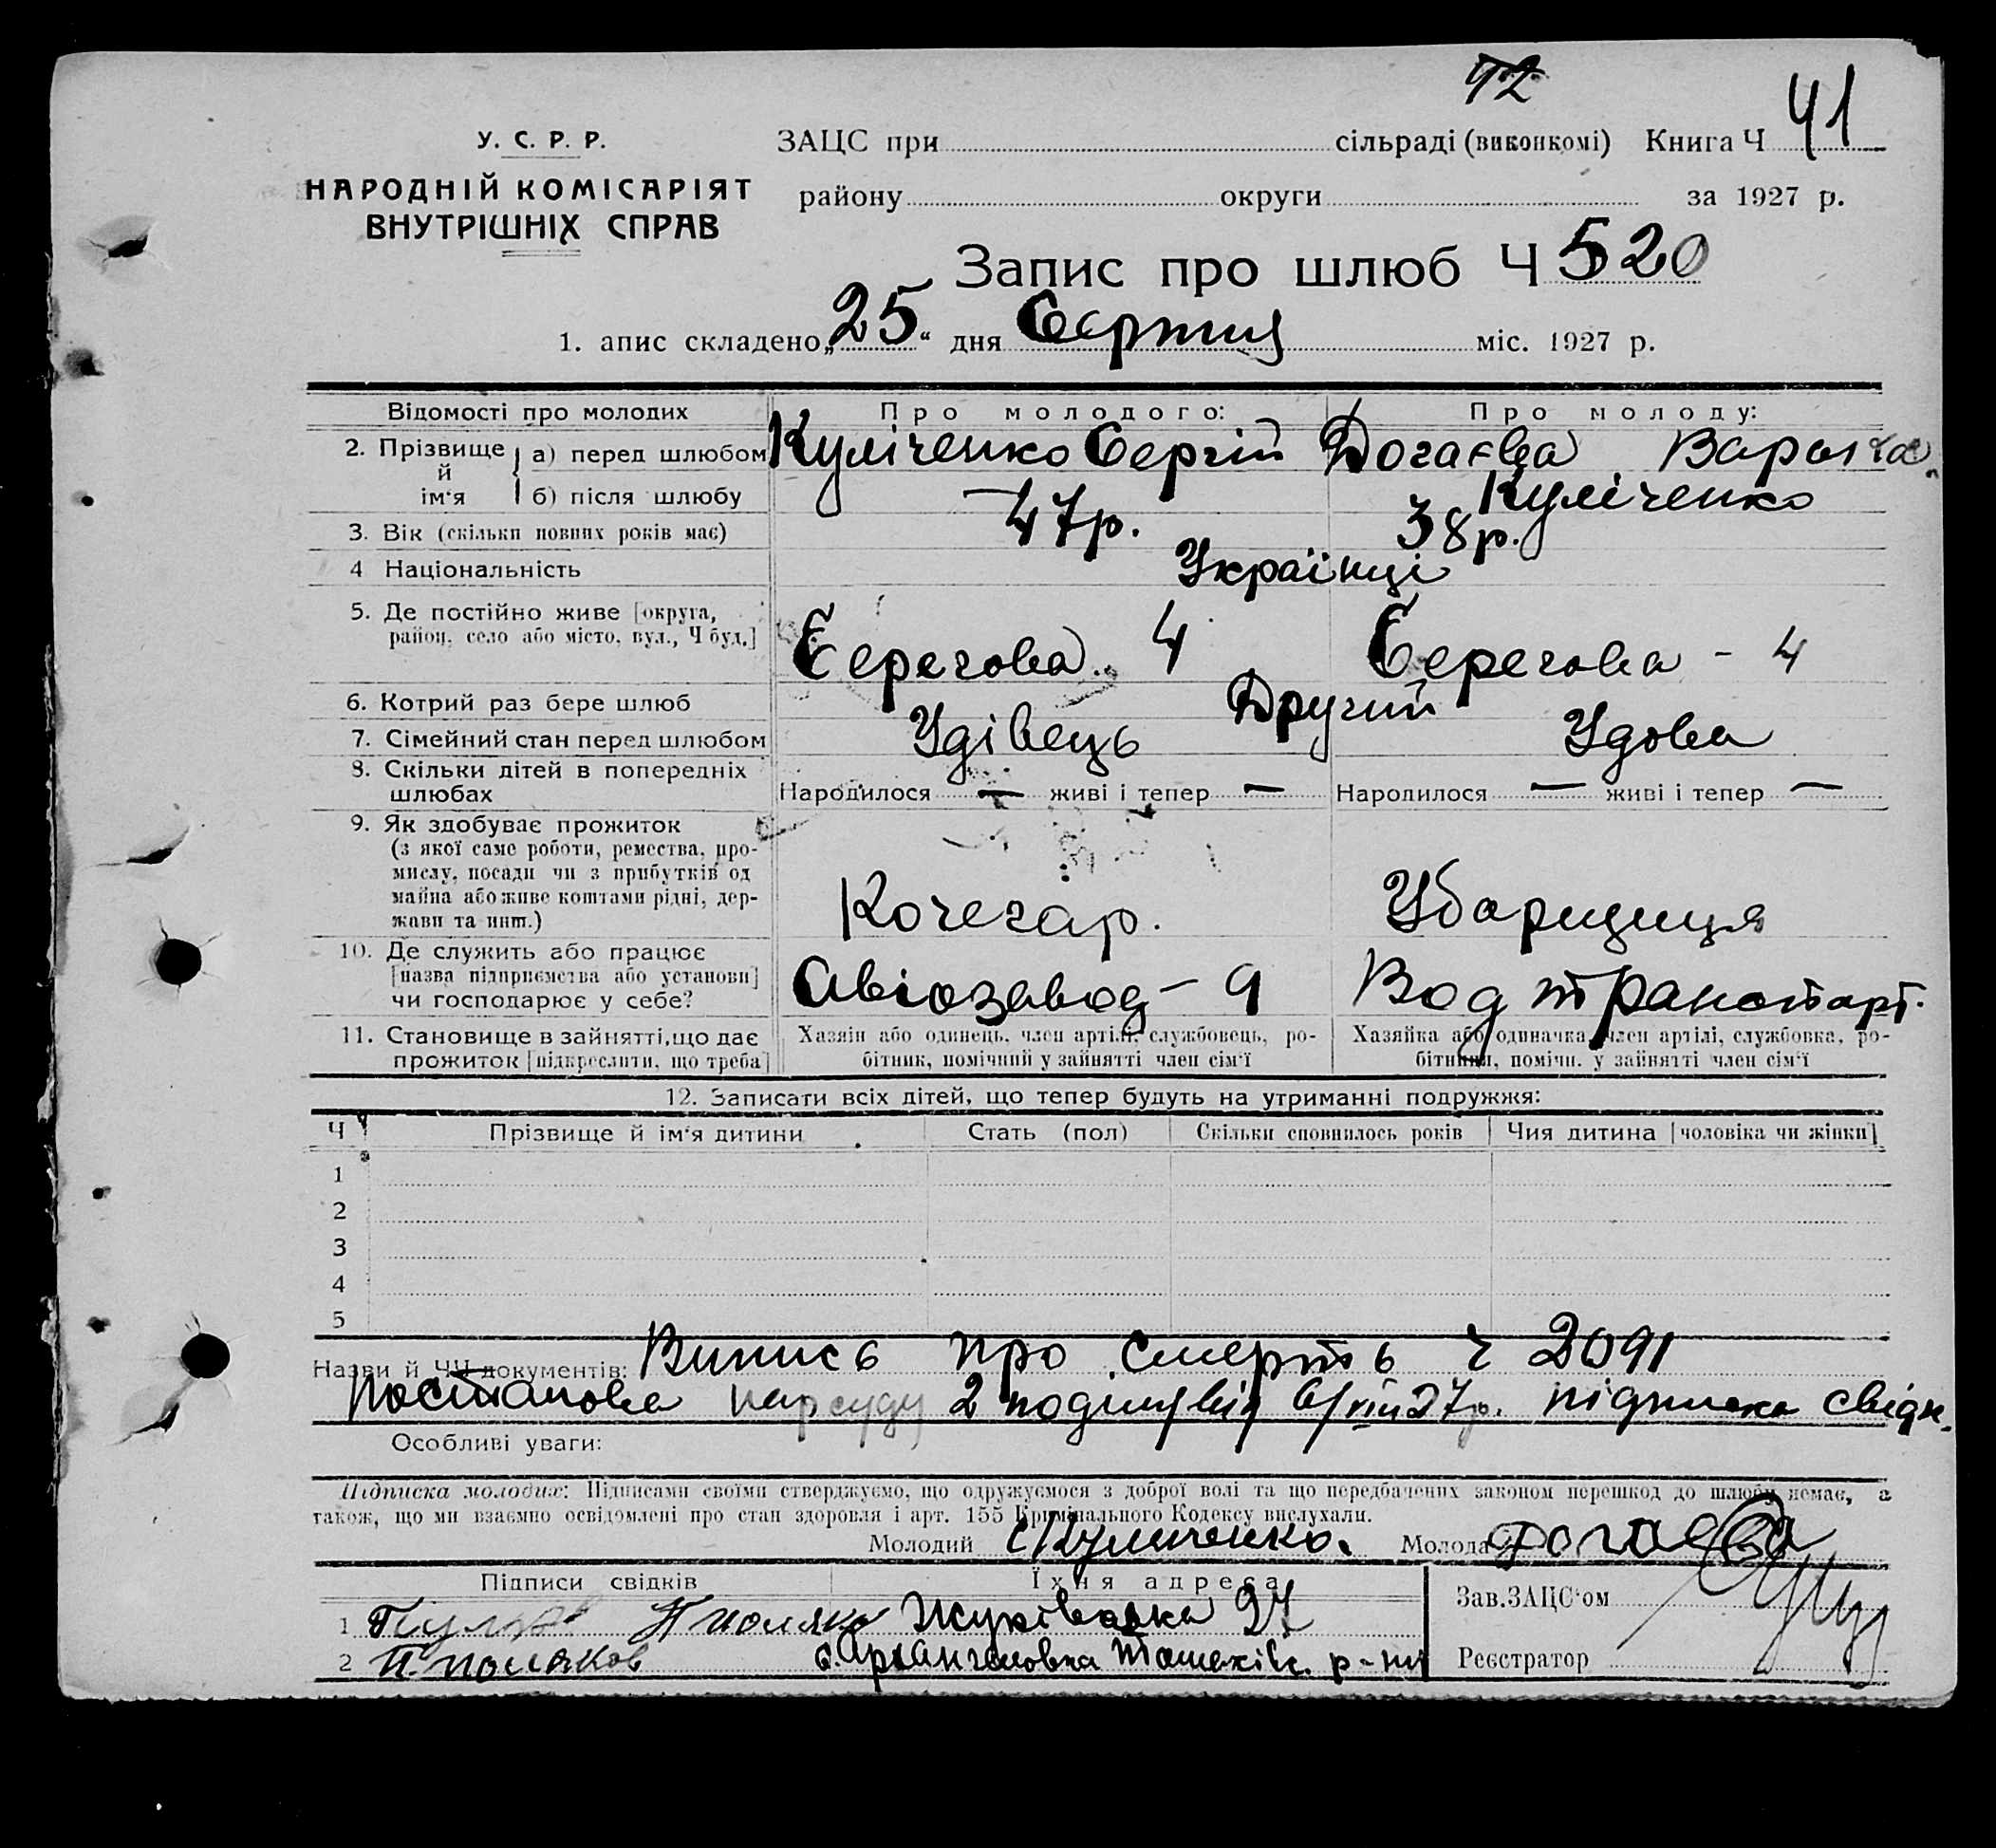 42
У. С. Р. Р.
ЗАЦС при сільраді (виконкомі) Книга Ч 41
НАРОДНІЙ КОМІСАРІЯТ
району округи за 1927 р.
ВНУТРІШНІХ СПРАВ
Запис про шлюб Ч 520
1. апис складено „25“ дня Серпня міс. 1927 р.
Відомості про молодих Про молодого: Про молоду:
2. Прізвище й ім'я а) перед шлюбом Куліченко Сергій Догаєва
б) після шлюбу — Куліченко
3. Вік (скільки повних років має) 47р. 38р.
4 Національність Українці
5. Де постійно живе [округа,
район, село або місто, вул., Ч буд.] Берегова 4 Берегова - 4
6. Котрий раз бере шлюб Другий
7. Сімейний стан перед шлюбом Удівець Удова
8. Скільки дітей в попередніх
шлюбах Народилося — живі і тепер — Народилося — живі і тепер —
9. Як здобуває прожиток
(з якої саме роботи, ремества, про-
мислу, посади чи з прибутків од
майна або живе коштами рідні, дер-
жави та инш.) Кочегар. Убарщиця
10. Де служить або працює
[назва підприємства або установи]
чи господарює у себе? Авіозавод - 9 Вод транспорт.
11. Становище в зайнятті, що дає
прожиток [підкреслити, що треба]
Хазяїн або одинець, член артілі, службовець, ро-
бітник, помічний у зайнятті член сім'ї
Хазяйка або одиначка, член артілі, службовка, ро-
бітниця, помічн. у зайнятті член сім'ї
12. Записати всіх дітей, що тепер будуть на утриманні подружжя:
Ч Прізвище й ім'я дитини Стать (пол) Скільки сповнилось років Чия дитина [чоловіка чи жінки]
1
2
3
4
5
Назви й ЧЧ документів: Випись про смерть ч 2091
постанова нарсуду 2 підписка свідк.
Особливі уваги:
Підписка молодих: Підписами своїми стверджуємо, що одружуємося з доброї волі та що передбачених законом перешкод до шлюбу немає, а
також, що ми взаємно освідомлені про стан здоровля і арт. 155 Кримінального Кодексу вислухали.
Молодий Куличенко. Молода Догаева
Підписи свідків Їхня адреса
1 97 Зав. ЗАЦС'ом
2 П. Поляков р-ну Реєстратор